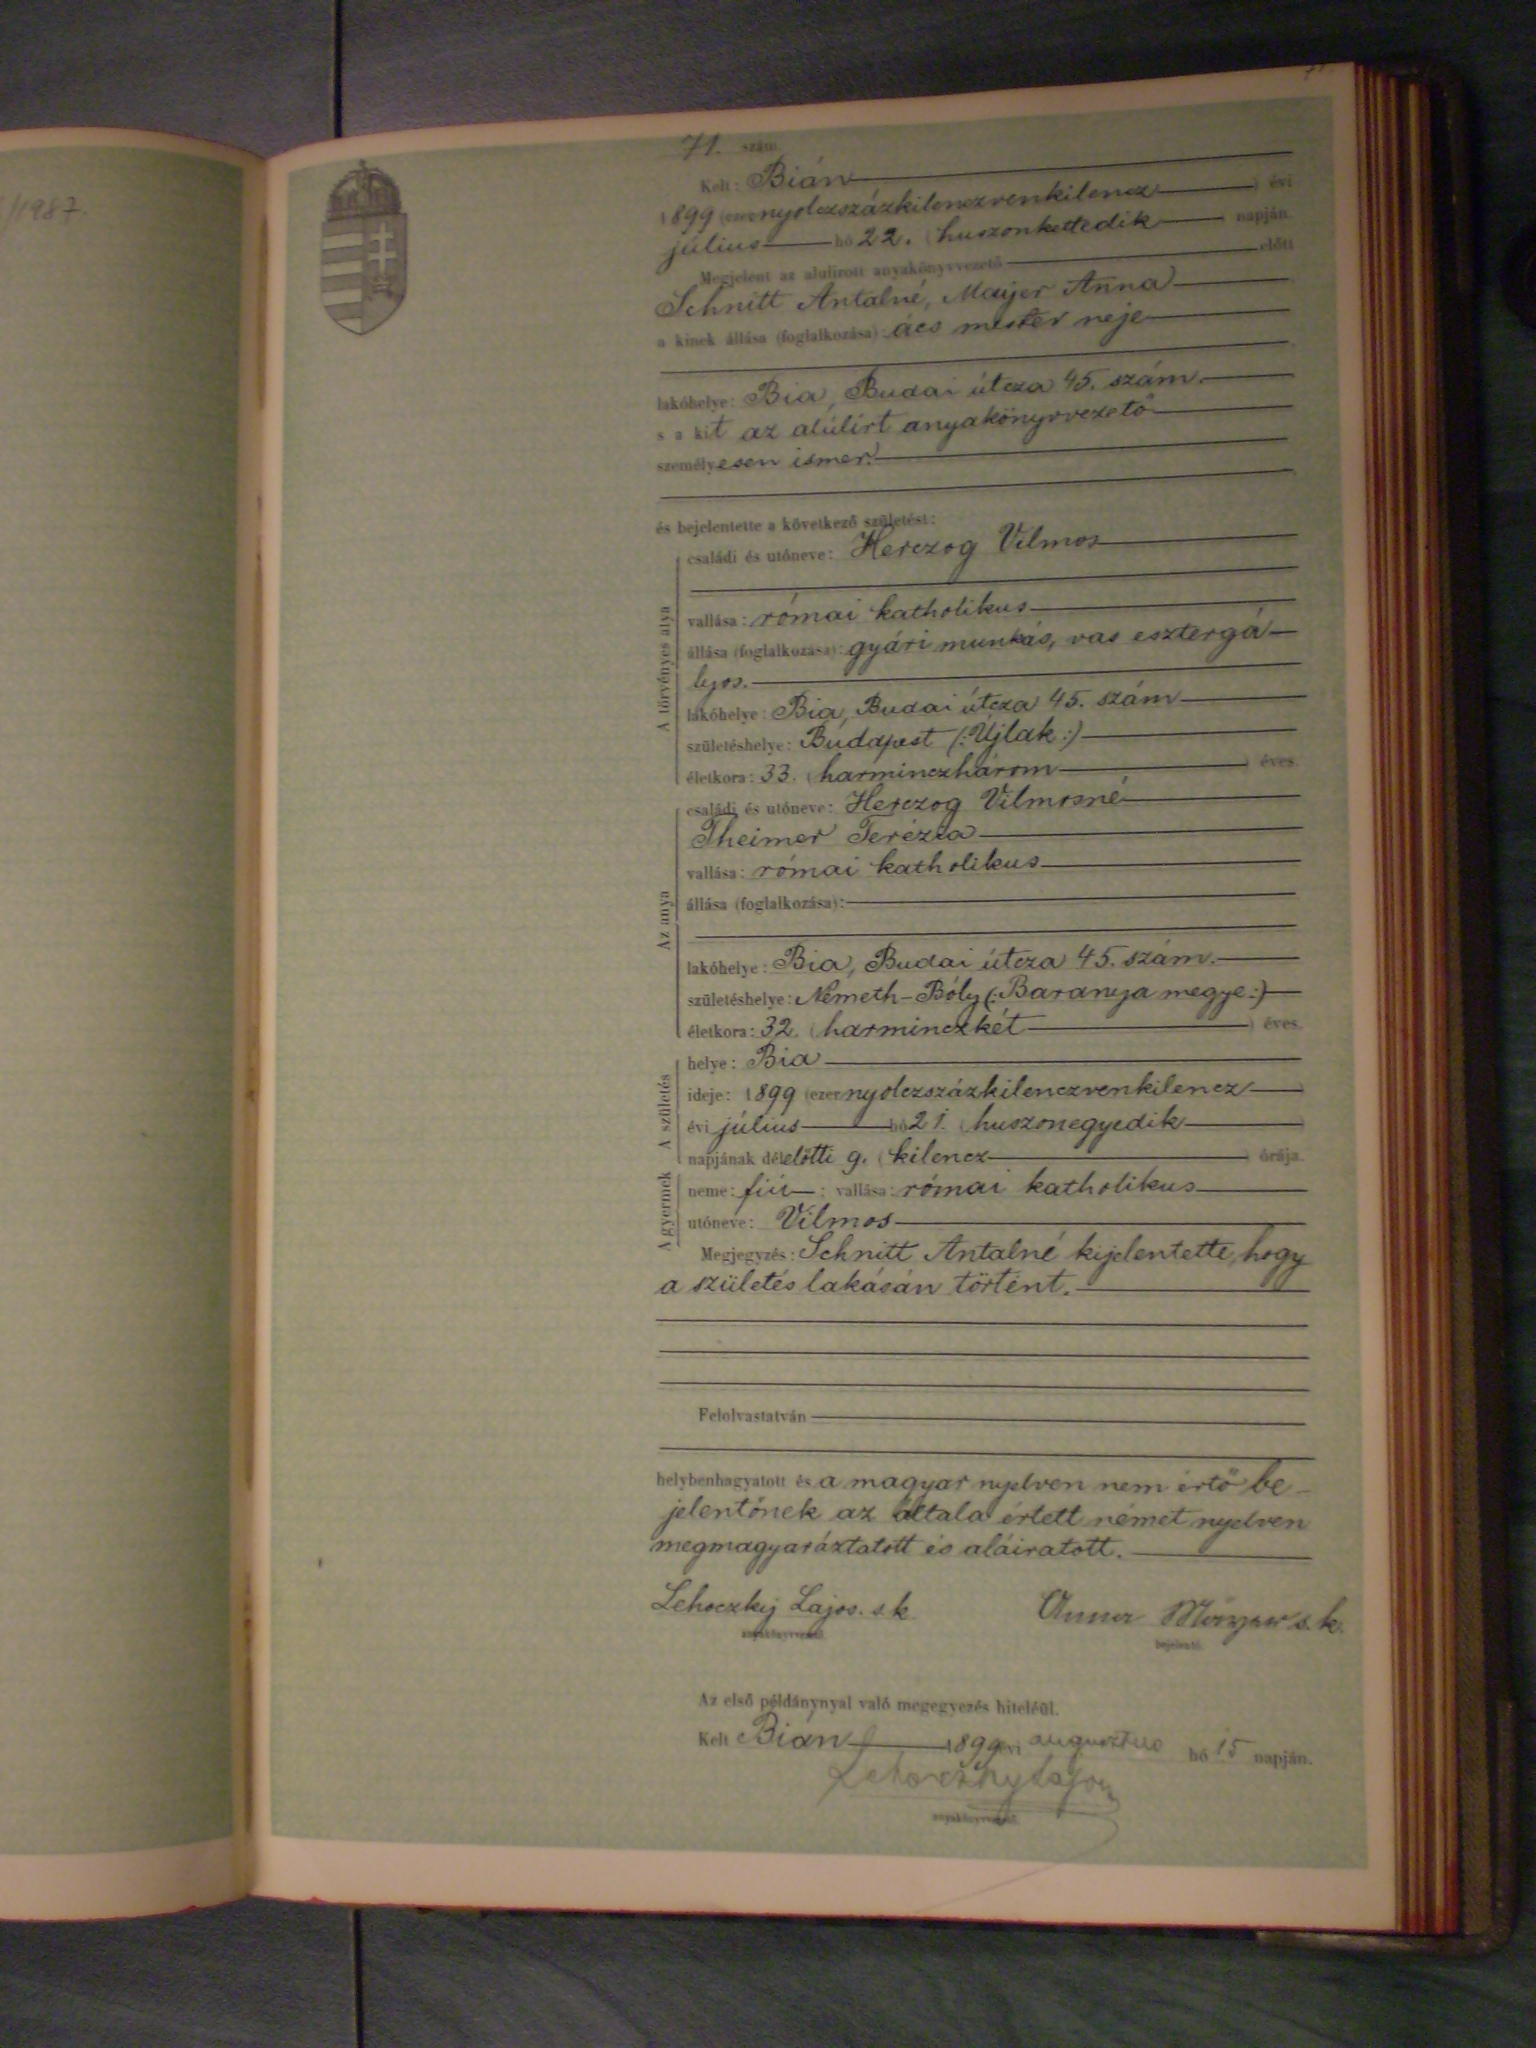 /1987.
71. szám
Kelt: Bián
1899 (ezernyolczszázkilenczvenkilencz) évi
július hó 22. (huszonkettedik) napján.
Megjelent az alulirott anyakönyvvezető előtt
Schnitt Antalné, Mayer Anna
a kinek állása (foglalkozása): ács mester neje
lakóhelye: Bia, Budai útcza 45. szám.
s a kit az alúlirt anyakönyvvezető
személyesen ismer.
és bejelentette a következő születést:
A törvényes atya
családi és utóneve: Herczog Vilmos
vallása: római katholikus
állása (foglalkozása): gyári munkás, vas esztergá-
lyos.
lakóhelye: Bia, Budai útcza 45. szám
születéshelye: Budapest (:Újlak:)
életkora: 33. (harminczhárom) éves.
Az anya
családi és utóneve: Herczog Vilmosné
Theimer Terézia
vallása: római katholikus
állása (foglalkozása):
lakóhelye: Bia, Budai útcza 45. szám.
születéshelye: Németh-Bóly (:Baranya megye:)
életkora: 32. (harminczkét) éves.
A születés
helye: Bia
ideje: 1899 (ezernyolczszázkilenczvenkilencz)
évi július hó 21. (huszonegyedik)
napjának délelőtti 9. (kilencz) órája.
A gyermek
neme: fiú; vallása: római katholikus
utóneve: Vilmos
Megjegyzés: Schnitt Antalné kijelentette, hogy
a születés lakásán történt.
Felolvastatván
helybenhagyatott és a magyar nyelven nem értő be-
jelentőnek az általa értett német nyelven
megmagyaráztatott és aláiratott.
Lehoczky Lajos. s. k. Anna Mayer s. k.
anyakönyvvezető. bejelentő.
Az első példánynyal való megegyezés hiteléül.
Kelt Bián 1899 évi augusztus hó 15 napján.
Lehoczky Lajos
anyakönyvvezető.